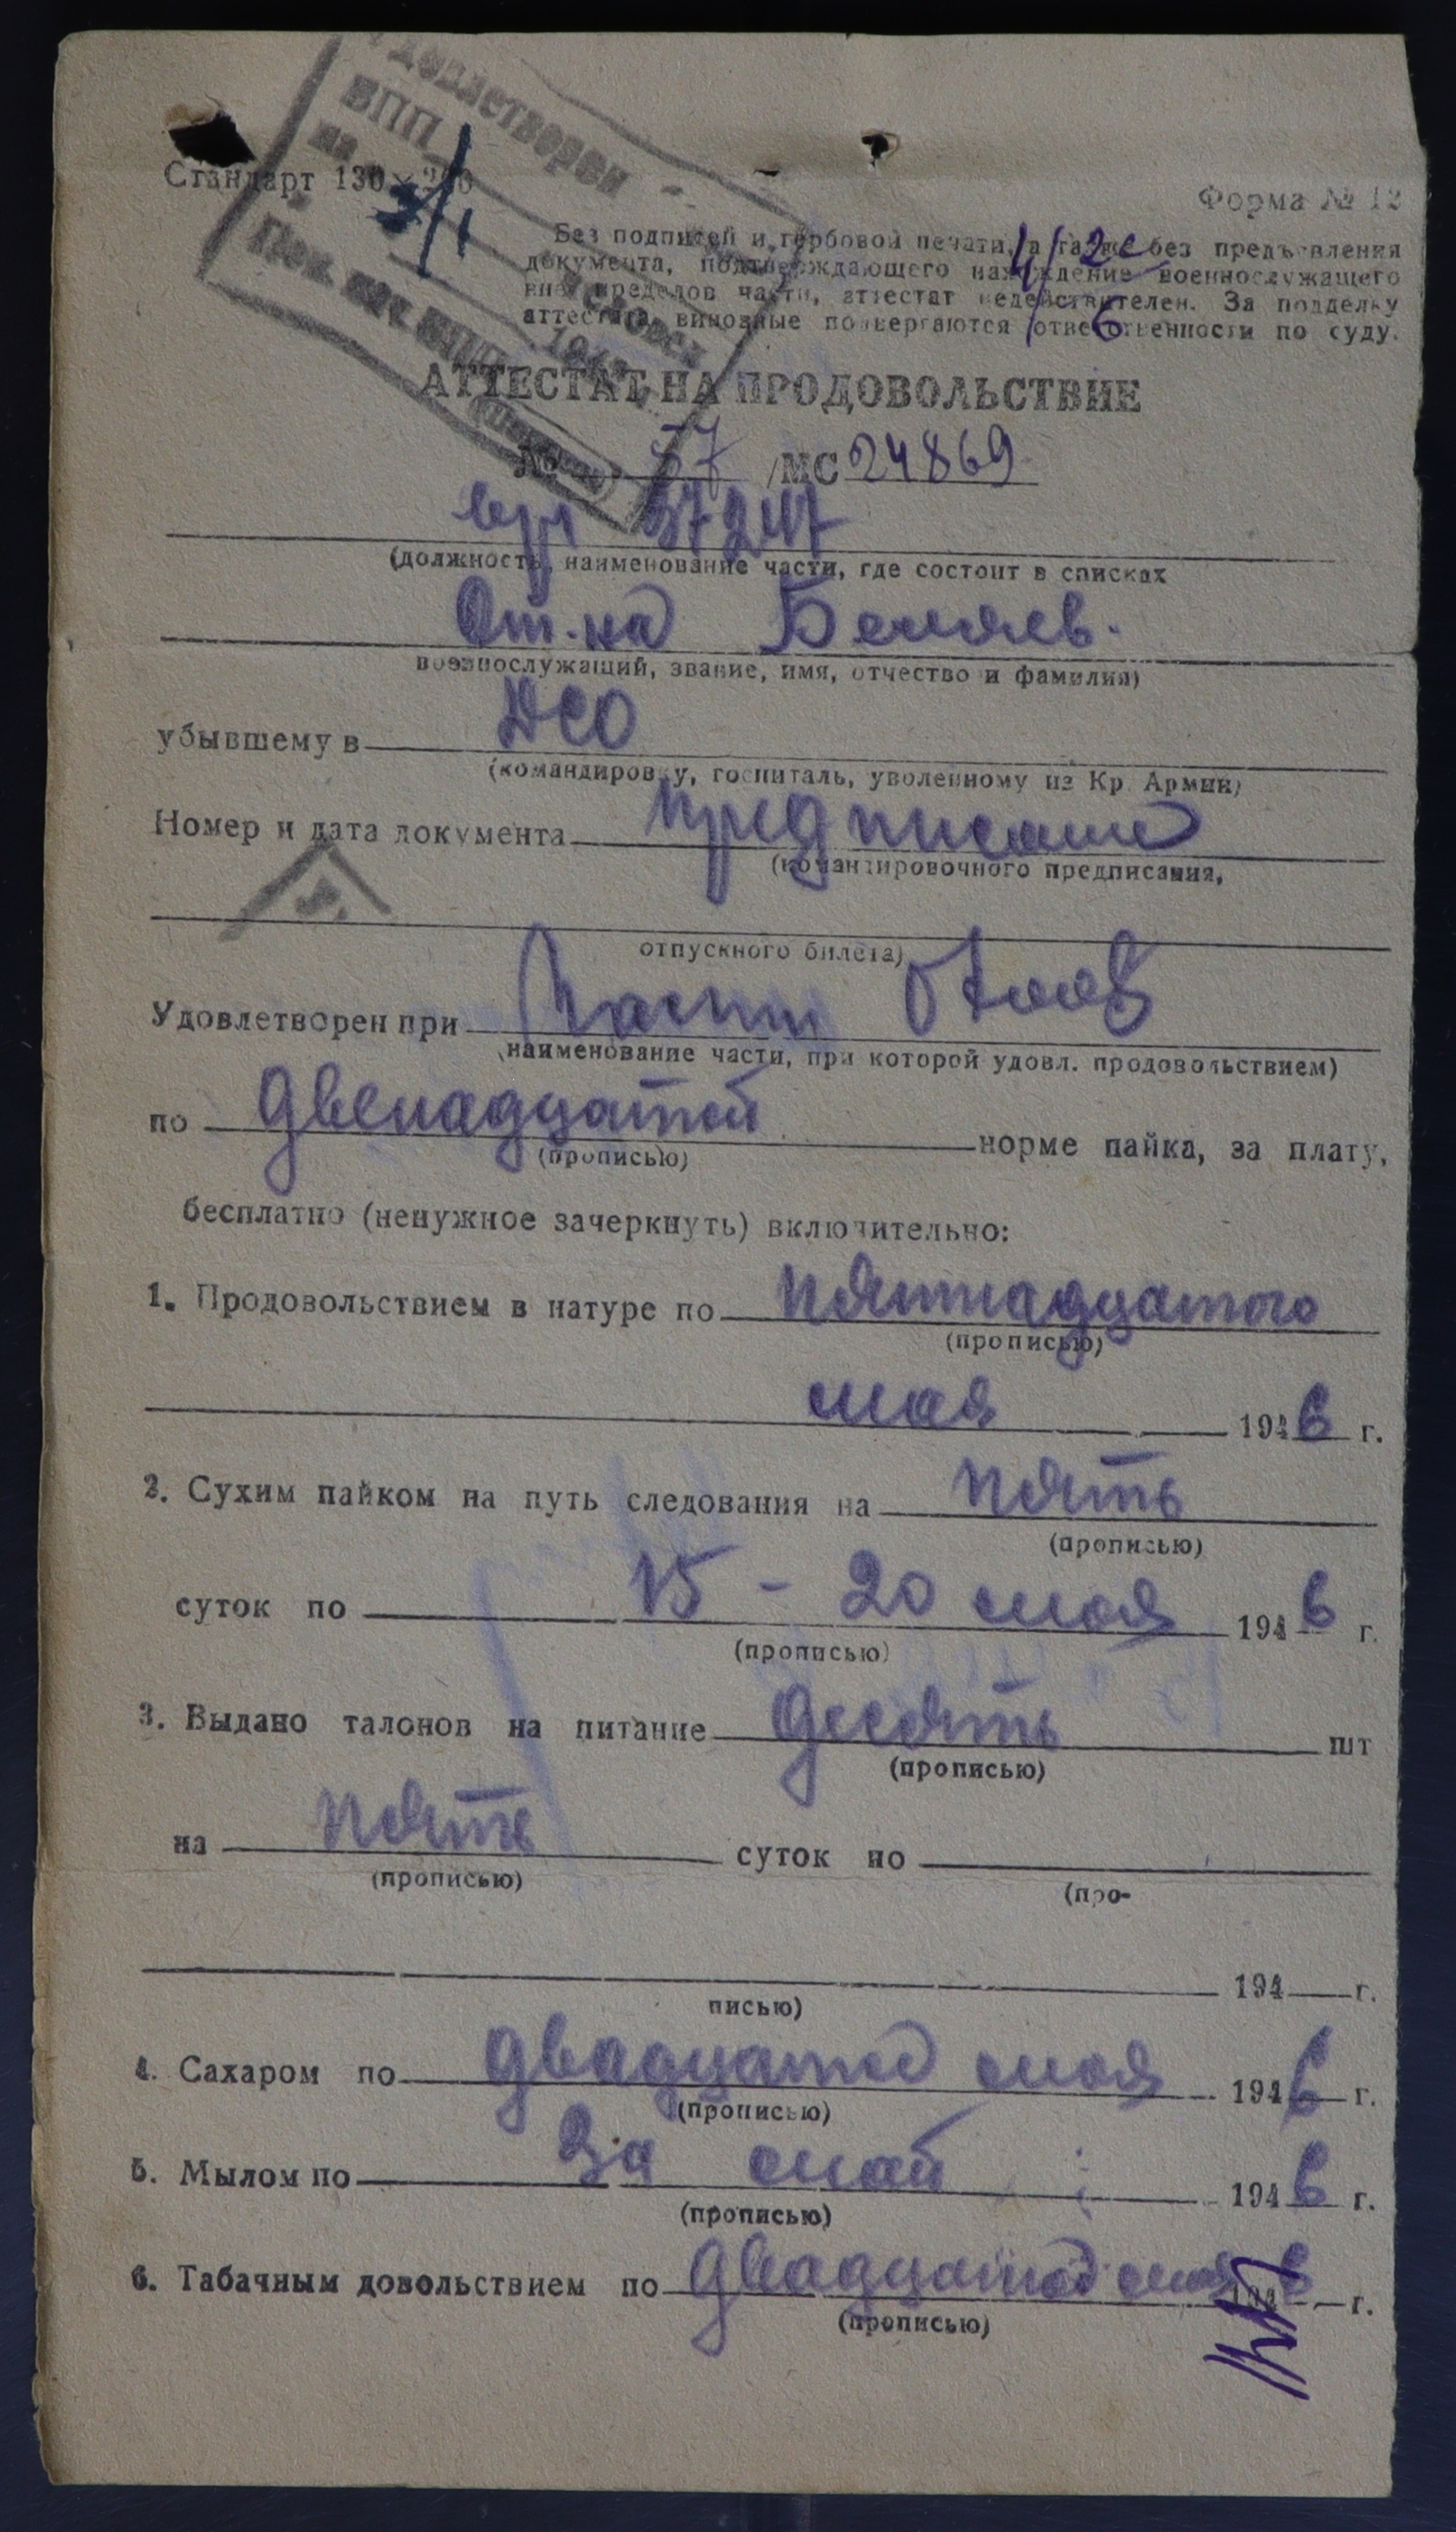 Удовлетворен
ВПП
на
194
Пом. нач. ВПП
Стандарт 130 × 200
Форма № 12
Без подписей и гербовой печати, а также без предъявления
документа, подтверждающего нахождение военнослужащего
вне пределов части, аттестат недействителен. За подделку
аттестата виновные подвергаются ответственности по суду.
АТТЕСТАТ НА ПРОДОВОЛЬСТВИЕ
№ 57 /МС 24869
в/ч 57247
(должность, наименование части, где состоит в списках
От-на Беляев.
военнослужащий, звание, имя, отчество и фамилия)
убывшему в ДСО
(командировку, госпиталь, уволенному из Кр Армии)
Номер и дата документа предписание
(командировочного предписания,
отпускного билета)
Удовлетворен при части
(наименование части, при которой удовл. продовольствием)
по двенадцатой норме пайка, за плату,
(прописью)
бесплатно (ненужное зачеркнуть) включительно:
1. Продовольствием в натуре по пятнадцатого
(прописью)
мая 1946 г.
2. Сухим пайком на путь следования на пять
(прописью)
суток по 15 - 20 мая 1946 г.
(прописью)
3. Выдано талонов на питание десять шт
(прописью)
на пять суток по
(прописью) (про-
194 г.
писью)
4. Сахаром по двадцатое мая 1946 г.
(прописью)
5. Мылом по за май 1946 г.
(прописью)
6. Табачным довольствием по двадцатое мая 1946 г.
(прописью)